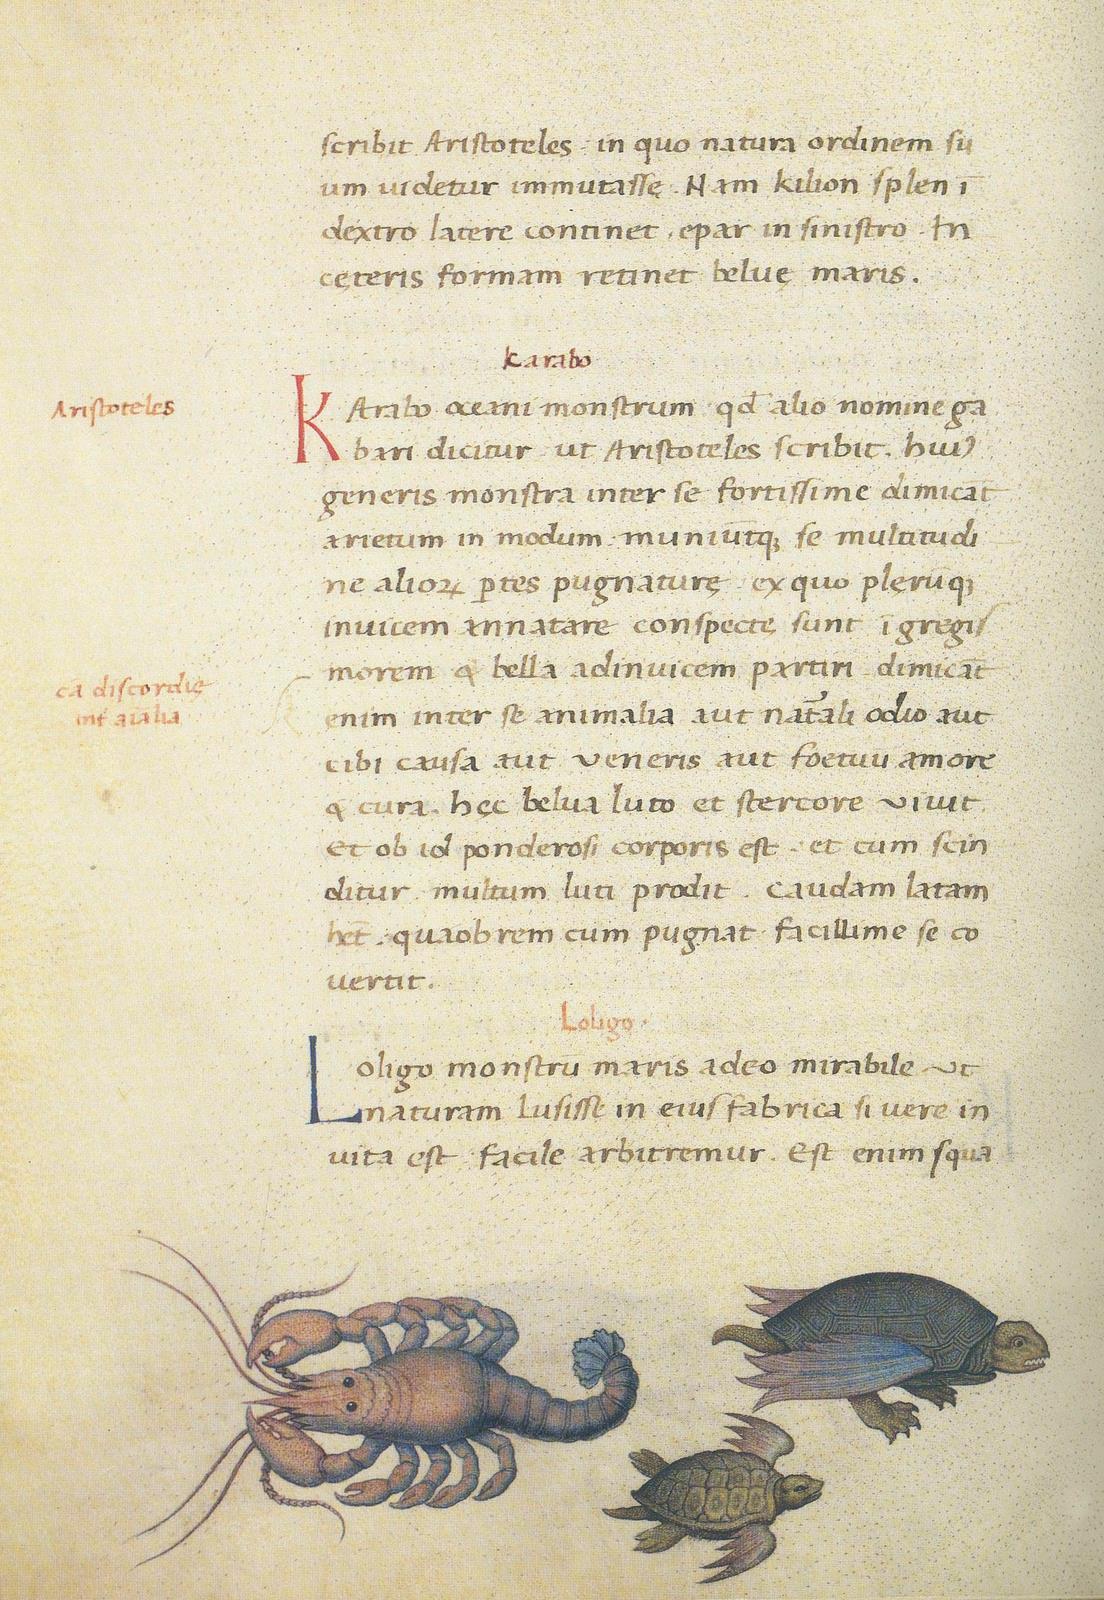 scribit Aristoteles in quo natura ordinem su
um uidetur immutasse. Nam kilion splen ī
dextro latere continet, epar in sinistro. In
cęteris formam retinet beluę maris.
Karabo
Aristoteles
KArabo oceani monstrum qd̄ alio nomine ga
bari dicitur ut Aristoteles scribit. huiꝰ
generis monstra inter se fortissime dimicāt
arietum in modum muniūtqꝫ se multitudi
ne alioꝝ ꝑtes pugnaturę ex quo plerūqꝫ
inuicem annatare conspectę sunt ī gregis
morem & bella adinuicem partiri dimicāt
cā discordię
int̄ aīalia
enim inter se animalia aut nat̄ali odio aut
cibi causa aut veneris aut foetuu amore
& cura. hęc belua luto et stercore viuit.
Et ob id ponderosi corporis est. et cum scin
ditur multum luti prodit. Caudam latam
het̄. quaobrem cum pugnat facillime se co
uertit.
Loligo.
Loligo monstrū maris adeo mirabile ut
naturam lusisse in eius fabrica si vere in
vita est facile arbitremur. Est enim squa